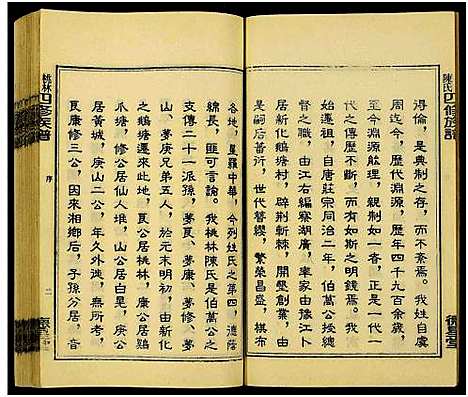 陳氏四修族譜
得倫，是典制之存，而不紊焉。我姓自虞
周迄今，歷代淵源，歷年四千九百余歲，
至今淵源能理，親制如一者，正是一代一
代之傳歷不斷，而有如斯之明德焉。我
族一世祖，自唐莊宗同治二年，伯萬公
督之職，由江右編察湖廣，率家由豫江卜
居新化鵝塘村，辟荆斬棘，開墾創業，由
是嗣后蕃衍，世代簪纓，繁榮昌盛，棋布
德星堂
各地，星羅中華，今列姓氏之第四，德蔭
綿長，匪可言論。我桃林陳氏是伯萬公之
交傳二十一派孫，夢艮、夢康、夢修、夢
山、夢庚兄弟五人，於元末明初，由新化
之鵝塘遷來此地，艮公居桃林，康公居鷄
爪塘，修公居仙人堆，山公居白㫒，庚公
居黄城，庚山二公，年久外遷，無所考，
艮康修三公，因來湘鄉后，子孫分居，音
桃林四修族譜
序
二
德星堂